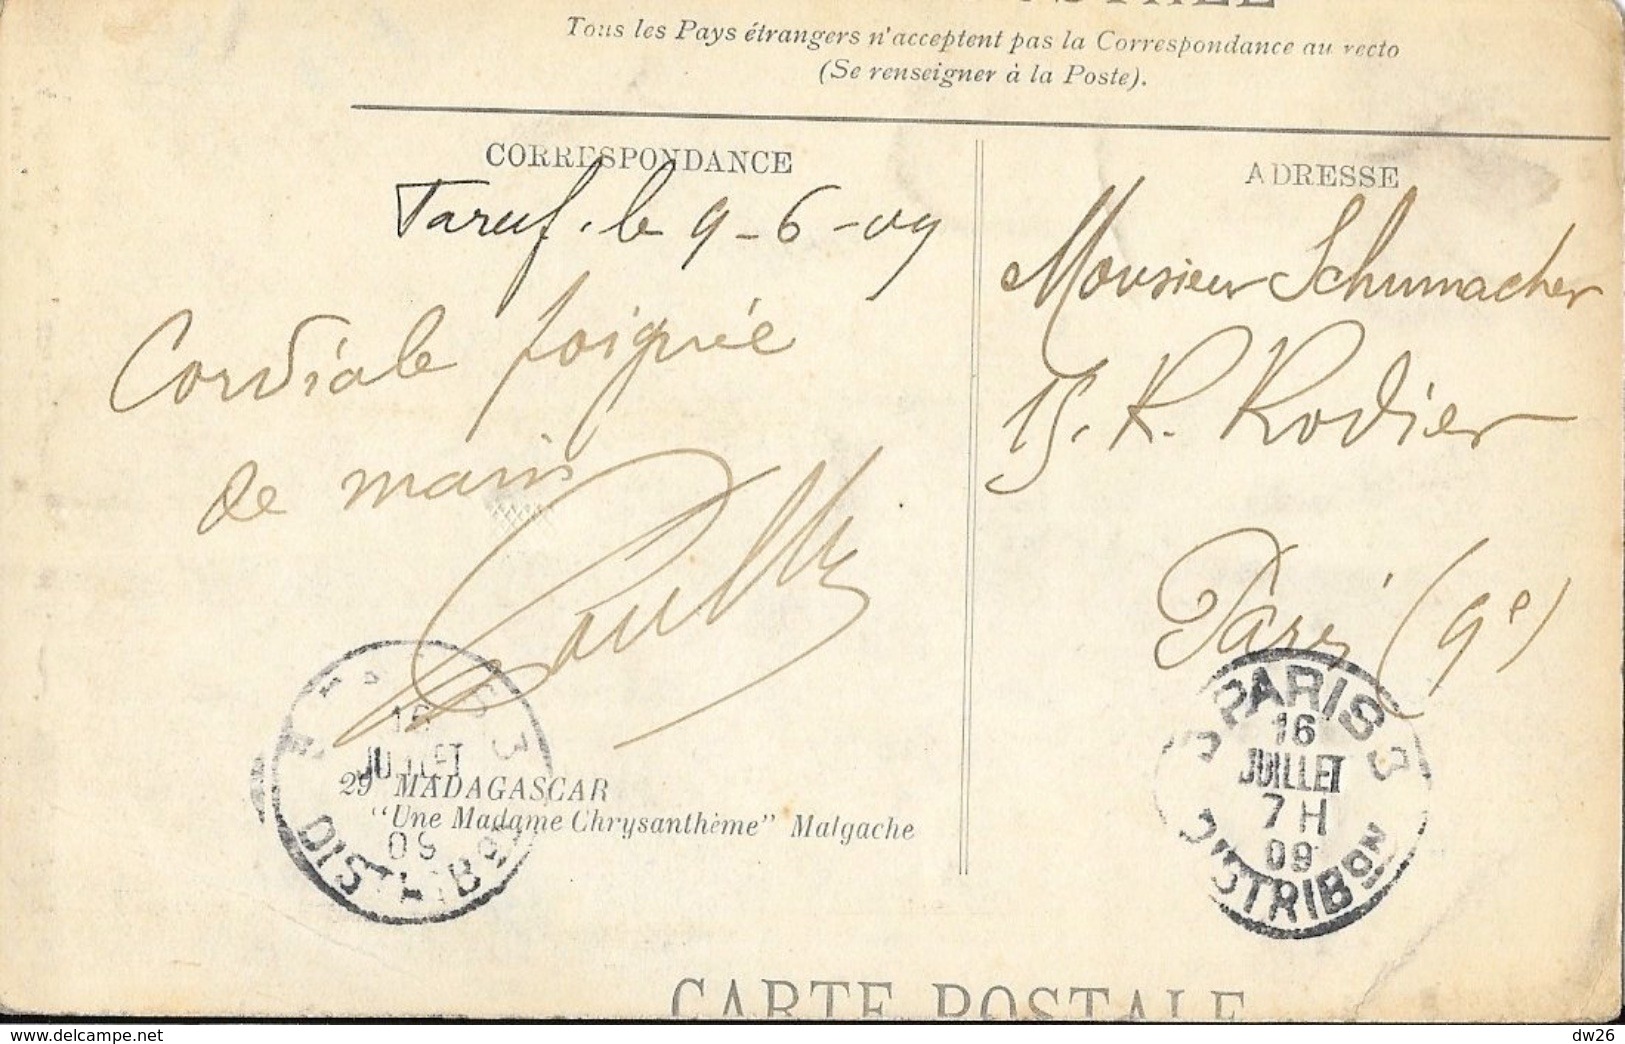 Tous les Pays étrangers n'acceptent pas la Correspondance au recto
(Se renseigner à la Poste).
CORRESPONDANCE
le 9-6-09
Cordiale poignée
de main
ADRESSE
Monsieur Schumacher
15. R. Rodier
Paris (9e)
PARIS 3
16
JUILLET
7 H
09
DISTRIBON
16
JUILLET
09
DISTRIBON
29 MADAGASCAR
"Une Madame Chrysanthème" Malgache
CARTE POSTALE
dw26